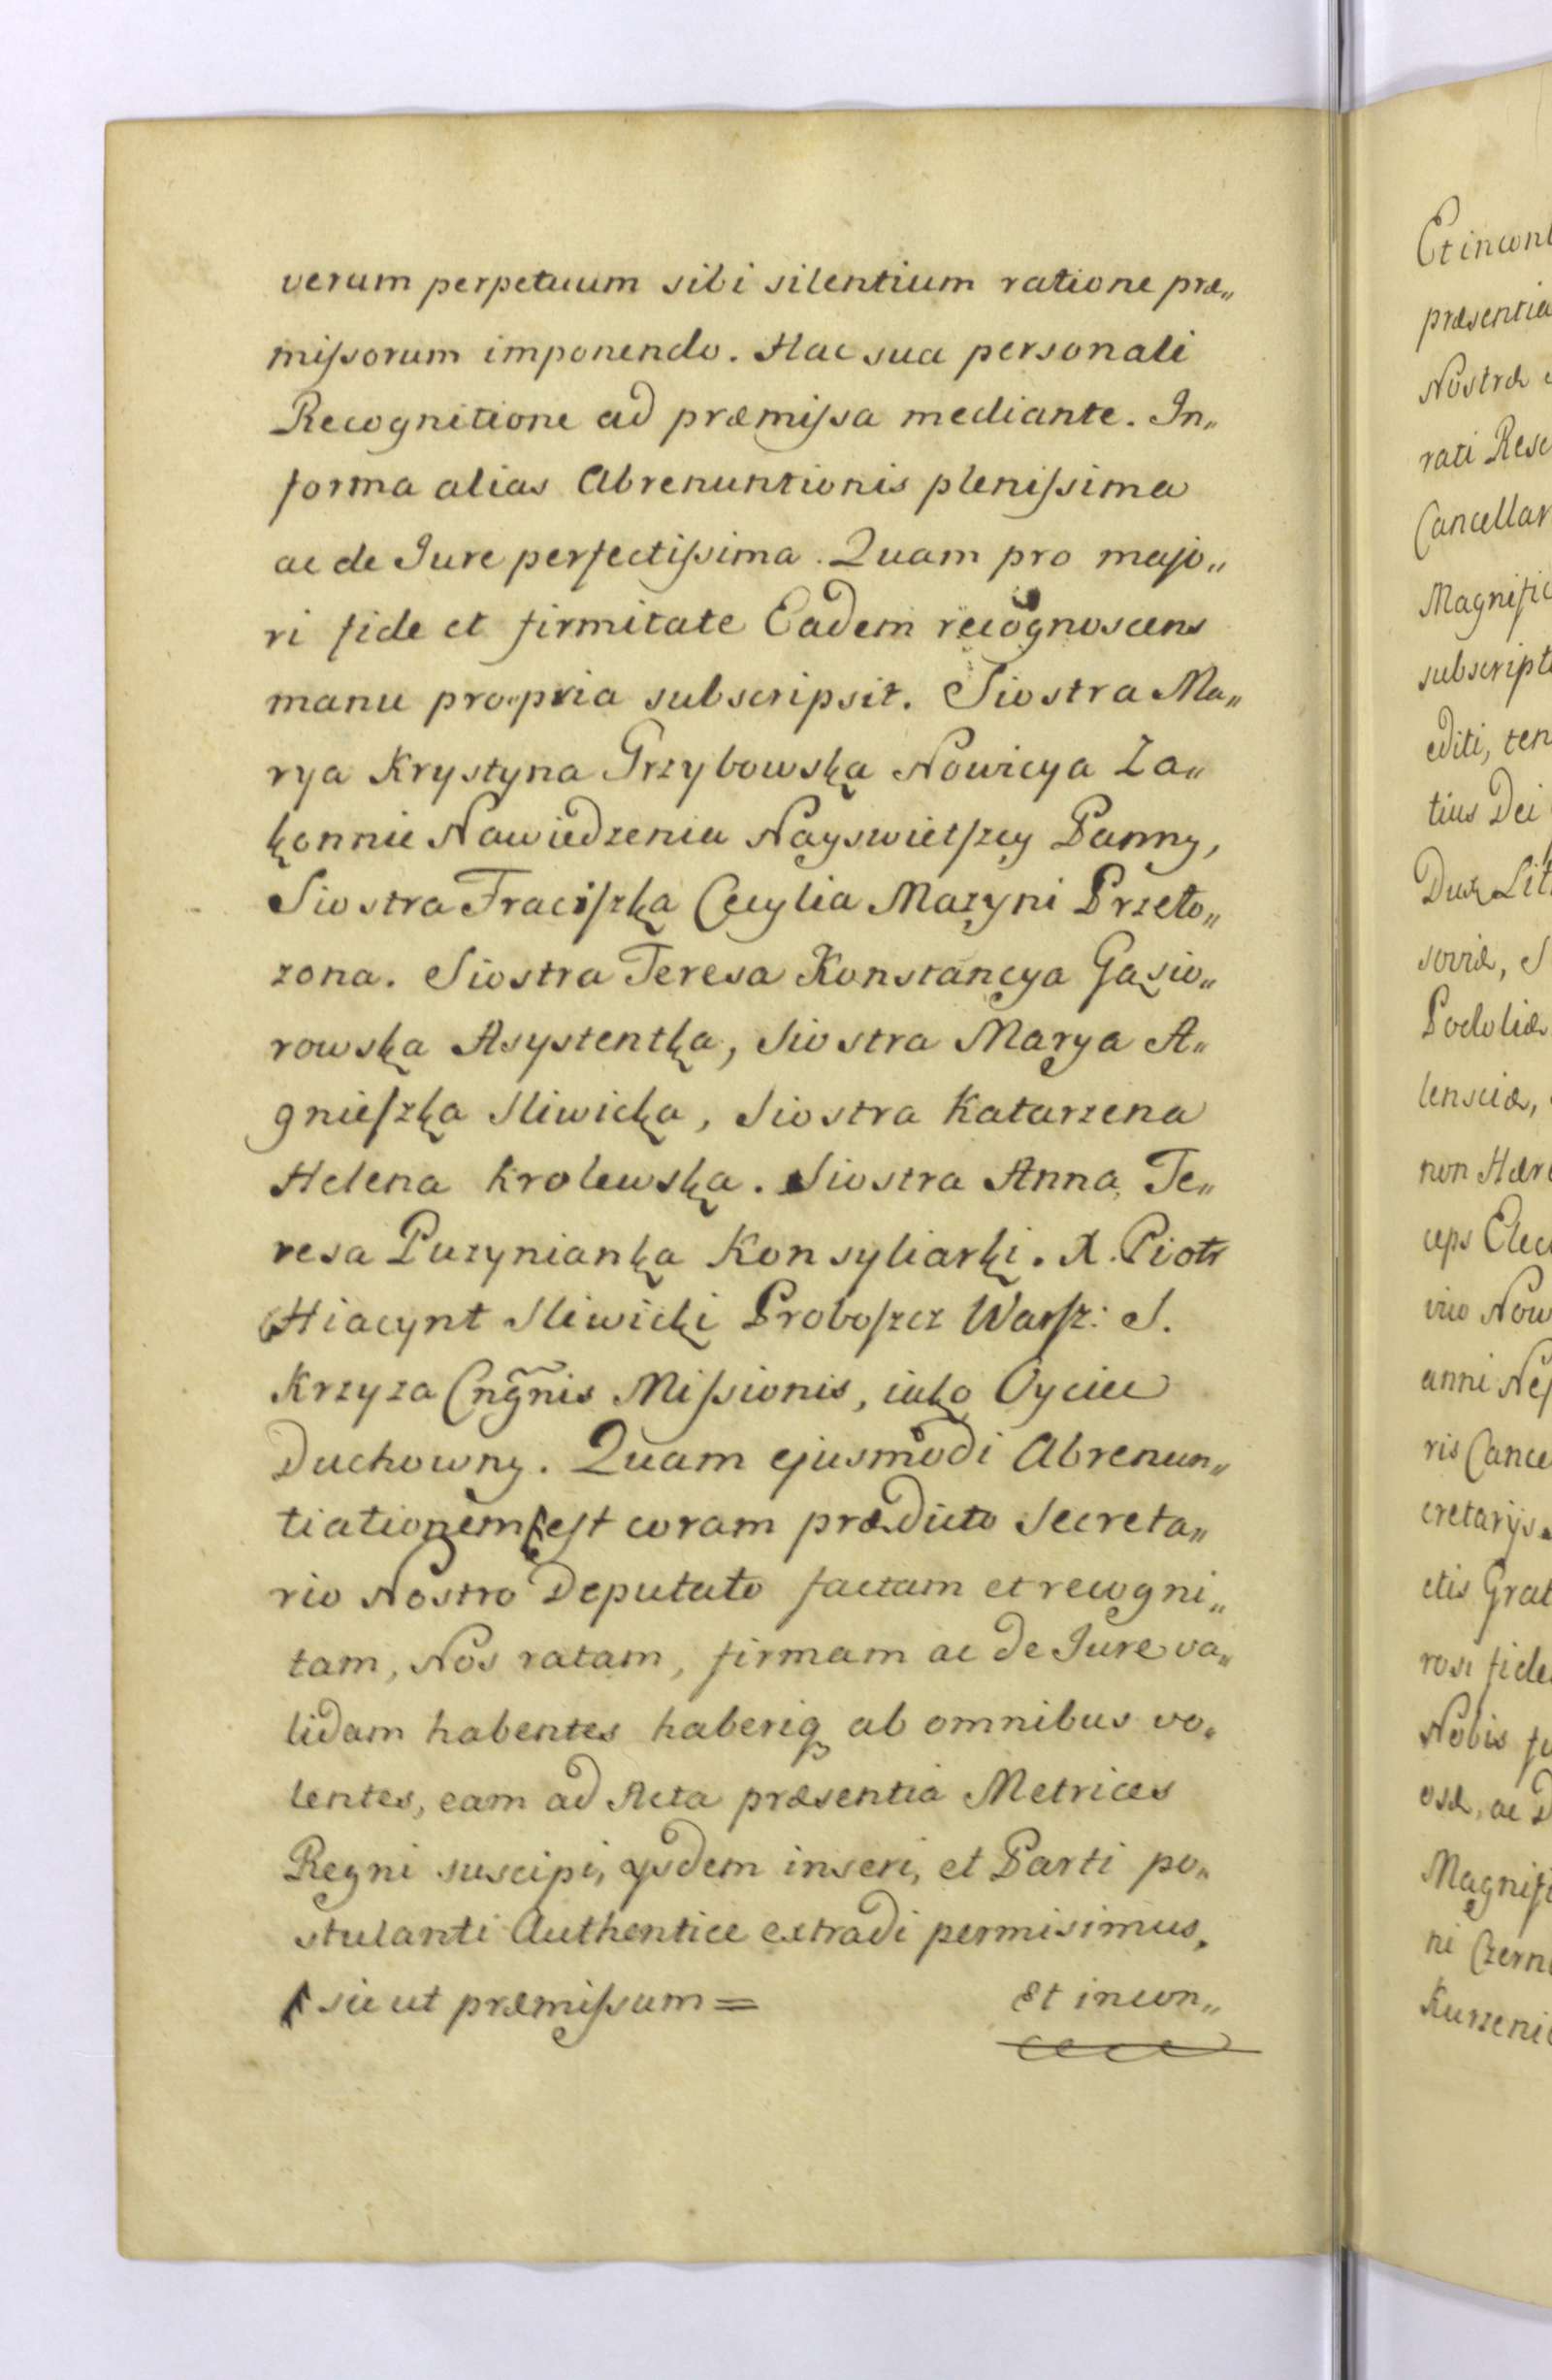 verum perpetuum sibi silentium ratione præ„
mißorum imponendo. Hac sua personali
Recognitione ad præmißa mediante. In„
forma alias Abrenuntionis plenißima
ac de Iure perfectißima. Quam pro majo„
ri fide et firmitate Eadem recognoscens
manu propria subscripsit. Siostra Ma„
rya Krystyna Grzybowska Nowicya Za„
konnie Nawiedzenia Nayswietszey Panny,
Siostra Traciszka Cecylia Mazyni Przeło„
zona. Siostra Teresa Konstancya Gąsio„
rowska Asystentka, Siostra Marya A„
gnieszka Sliwicka, Siostra Katarzena
Helena Krolewska. Siostra Anna Te„
resa Puzynianka Konsyliarki. X. Piotr
Hiacynt Sliwicki Proboszcz Warsz: S.
Krzyza Cngñis Mißionis, iako Oyciec
Duchowny. Quam ejusmodi Abrenun„
tiationem est coram prædicto Secreta„
rio Nostro Deputato factam et recogni„
tam, Nos ratam, firmam ac de Iure va„
lidam habentes haberiq ab omnibus vo„
lentes, eam ad Acta præsentia Metrices
Regni suscipi, ysdem inseri, et Parti po„
stulanti Authentice extradi permisimus.
sic ut præmißum = Et incon„
Et incont
præsentia
Nostræ
rati Resc
Cancellar
Magnific
subscript
editi, ten
tius Dei
Dux Lit
soviæ, S
Podoliæ
lensciæ,
non Hære
ceps Elec
vico Now
anni Nep
ris Cance
cretarijs
ctis Grat
rosi fide
Nobis
osæ, ac D
Magnifi
ni Czern
Kurzeni